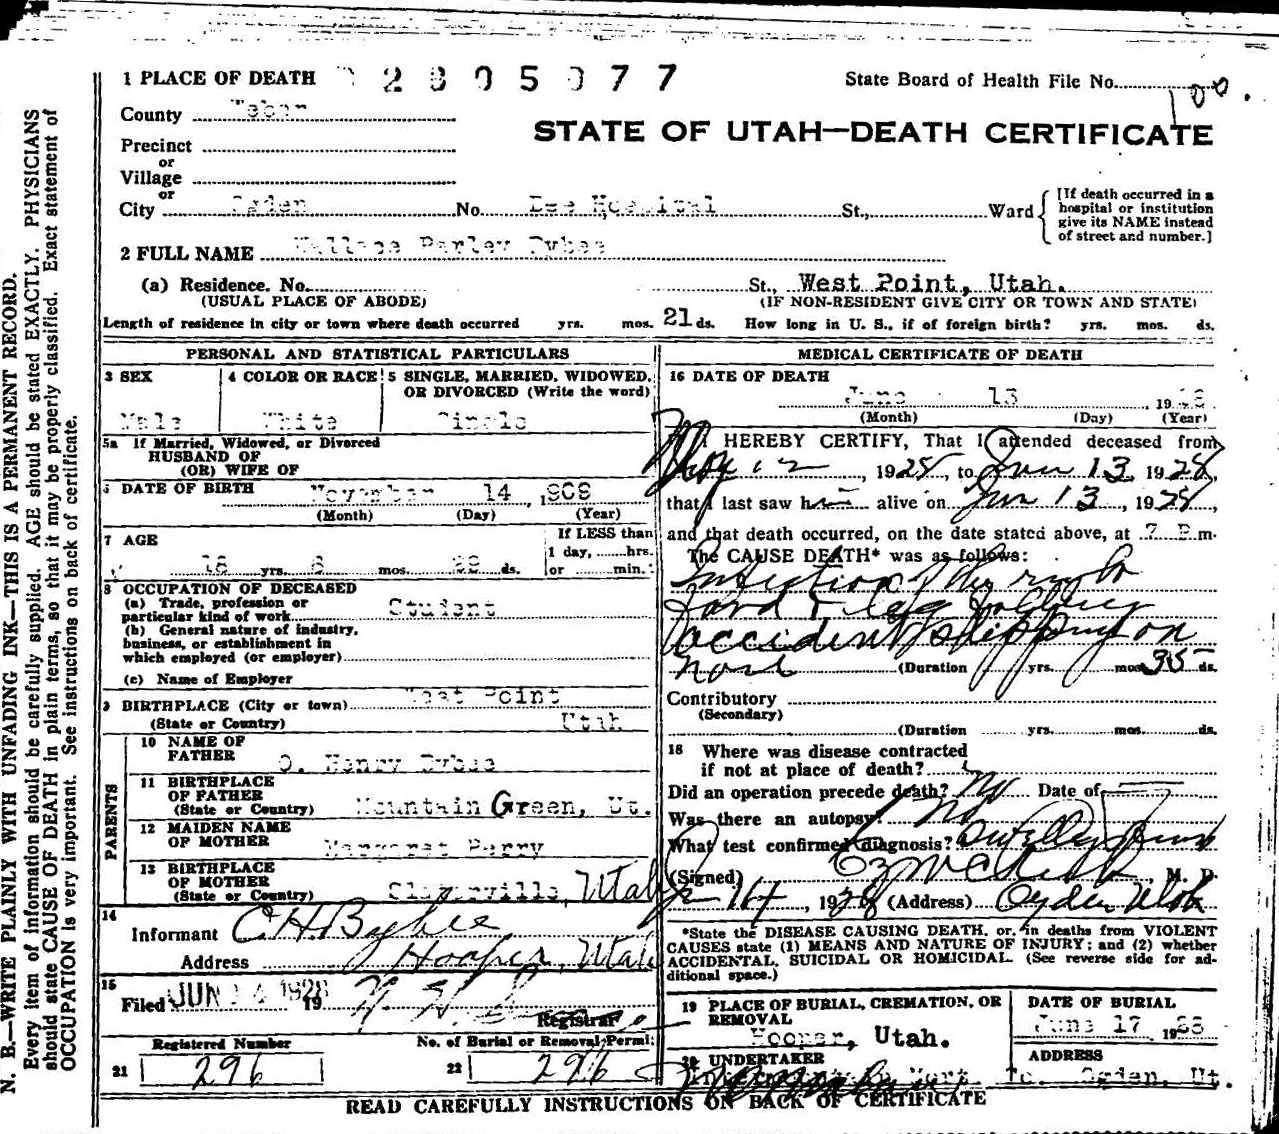 1 PLACE OF DEATH 2805077 State Board of Health File No. 100
County Weber
STATE OF UTAH—DEATH CERTIFICATE
Precinct
or
Village
or
City Ogden No. Dee Hospital St., Ward
[If death occurred in a hospital or institution give its NAME instead of street and number.]
2 FULL NAME Wallace Parley Bybee
(a) Residence. No. St., West Point, Utah.
(USUAL PLACE OF ABODE) (IF NON-RESIDENT GIVE CITY OR TOWN AND STATE)
Length of residence in city or town where death occurred yrs. mos. 21 ds. How long in U. S., if of foreign birth? yrs. mos. ds.
PERSONAL AND STATISTICAL PARTICULARS
3 SEX
Male
4 COLOR OR RACE
White
5 SINGLE, MARRIED, WIDOWED, OR DIVORCED (Write the word)
Single
5a If Married, Widowed, or Divorced
HUSBAND OF
(OR) WIFE OF
6 DATE OF BIRTH November 14, 1909
(Month) (Day) (Year)
7 AGE
18 yrs. 6 mos. 29 ds.
If LESS than
1 day, hrs.
or min.
8 OCCUPATION OF DECEASED
(a) Trade, profession or
particular kind of work Student
(b) General nature of industry,
business, or establishment in
which employed (or employer)
(c) Name of Employer
9 BIRTHPLACE (City or town) West Point
(State or Country) Utah
PARENTS
10 NAME OF
FATHER O. Henry Bybee
11 BIRTHPLACE
OF FATHER
(State or Country) Mountain Green, Ut.
12 MAIDEN NAME
OF MOTHER Margaret Perry
13 BIRTHPLACE
OF MOTHER
(State or Country) Slaterville, Utah
14
Informant C.H. Bybee
Address Hooper, Utah
15
Filed JUN 14 1928 19
Registrar
Registered Number No. of Burial or Removal Permit
21 296 22 296
MEDICAL CERTIFICATE OF DEATH
16 DATE OF DEATH
June 13, 1928
(Month) (Day) (Year)
I HEREBY CERTIFY, That I attended deceased from
May 1928, to Jun 13, 1928,
that I last saw him alive on Jun 13, 1928,
and that death occurred, on the date stated above, at 7 P.m.
The CAUSE DEATH* was as follows:
Infection
leg
accident slipping on
(Duration yrs. mos. 35 ds.
Contributory
(Secondary)
(Duration yrs. mos. ds.
18 Where was disease contracted
if not at place of death?
Did an operation precede death? No Date of
Was there an autopsy? No
What test confirmed diagnosis?
(Signed) M. D.
14, 1928 (Address) Ogden Utah
*State the DISEASE CAUSING DEATH, or, in deaths from VIOLENT
CAUSES state (1) MEANS AND NATURE OF INJURY; and (2) whether
ACCIDENTAL, SUICIDAL OR HOMICIDAL. (See reverse side for ad-
ditional space.)
19 PLACE OF BURIAL, CREMATION, OR
REMOVAL
Hooper, Utah.
DATE OF BURIAL
June 17 1928
20 UNDERTAKER
ADDRESS
Ogden, Ut.
READ CAREFULLY INSTRUCTIONS ON BACK OF CERTIFICATE
N. B.—WRITE PLAINLY WITH UNFADING INK—THIS IS A PERMANENT RECORD.
Every item of information should be carefully supplied. AGE should be stated EXACTLY. PHYSICIANS
should state CAUSE OF DEATH in plain terms, so that it may be properly classified. Exact statement of
OCCUPATION is very important. See instructions on back of certificate.